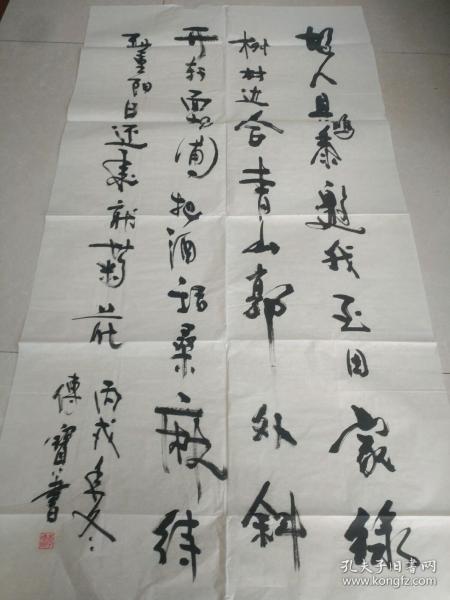 故人具鸡黍邀我至田家绿
树村边合青山郭外斜
开轩面场圃把酒话桑麻待
到重阳日还来就菊花
丙戌季冬
傳寶書
孔夫子旧书网
www.kongfz.com